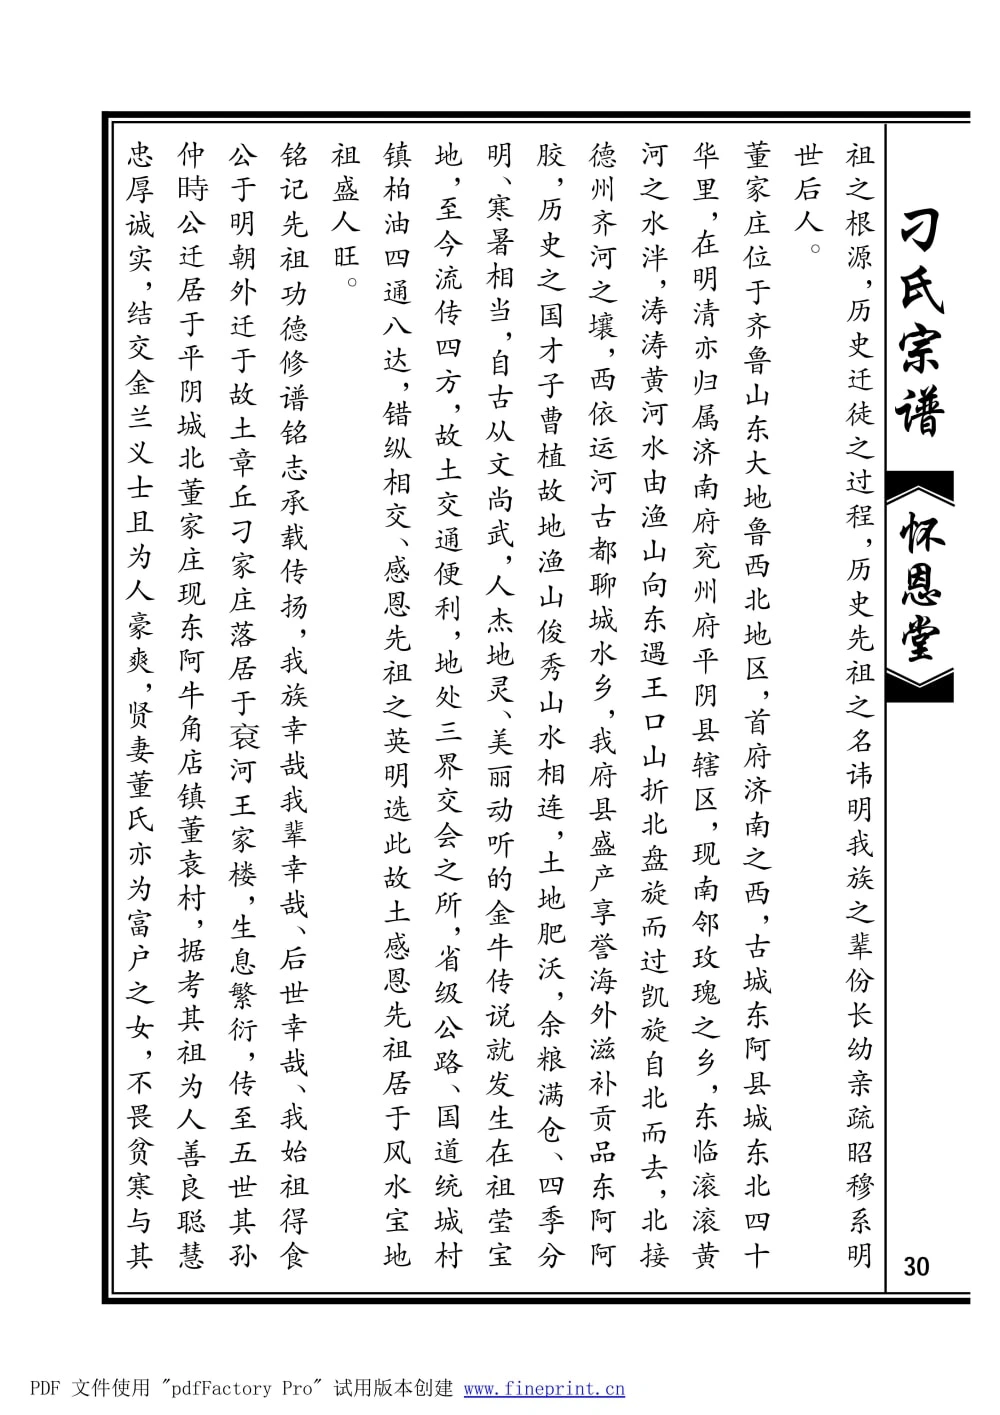 刁氏宗谱
怀恩堂
30
祖之根源，历史迁徒之过程，历史先祖之名讳明我族之辈份长幼亲疏昭穆系明
世后人。
董家庄位于齐鲁山东大地鲁西北地区，首府济南之西，古城东阿县城东北四十
华里，在明清亦归属济南府兖州府平阴县辖区，现南邻玫瑰之乡，东临滚滚黄
河之水泮，涛涛黄河水由渔山向东遇王口山折北盘旋而过凯旋自北而去，北接
德州齐河之壤，西依运河古都聊城水乡，我府县盛产享誉海外滋补贡品东阿阿
胶，历史之国才子曹植故地渔山俊秀山水相连，土地肥沃，余粮满仓、四季分
明、寒暑相当，自古从文尚武，人杰地灵、美丽动听的金牛传说就发生在祖莹宝
地，至今流传四方，故土交通便利，地处三界交会之所，省级公路、国道统城村
镇柏油四通八达，错纵相交、感恩先祖之英明选此故土感恩先祖居于风水宝地
祖盛人旺。
铭记先祖功德修谱铭志承载传扬，我族幸哉我辈幸哉、后世幸哉、我始祖得食
公于明朝外迁于故土章丘刁家庄落居于袞河王家楼，生息繁衍，传至五世其孙
仲時公迁居于平阴城北董家庄现东阿牛角店镇董袁村，据考其祖为人善良聪慧
忠厚诚实，结交金兰义士且为人豪爽，贤妻董氏亦为富户之女，不畏贫寒与其
PDF 文件使用 "pdfFactory Pro" 试用版本创建 www.fineprint.cn